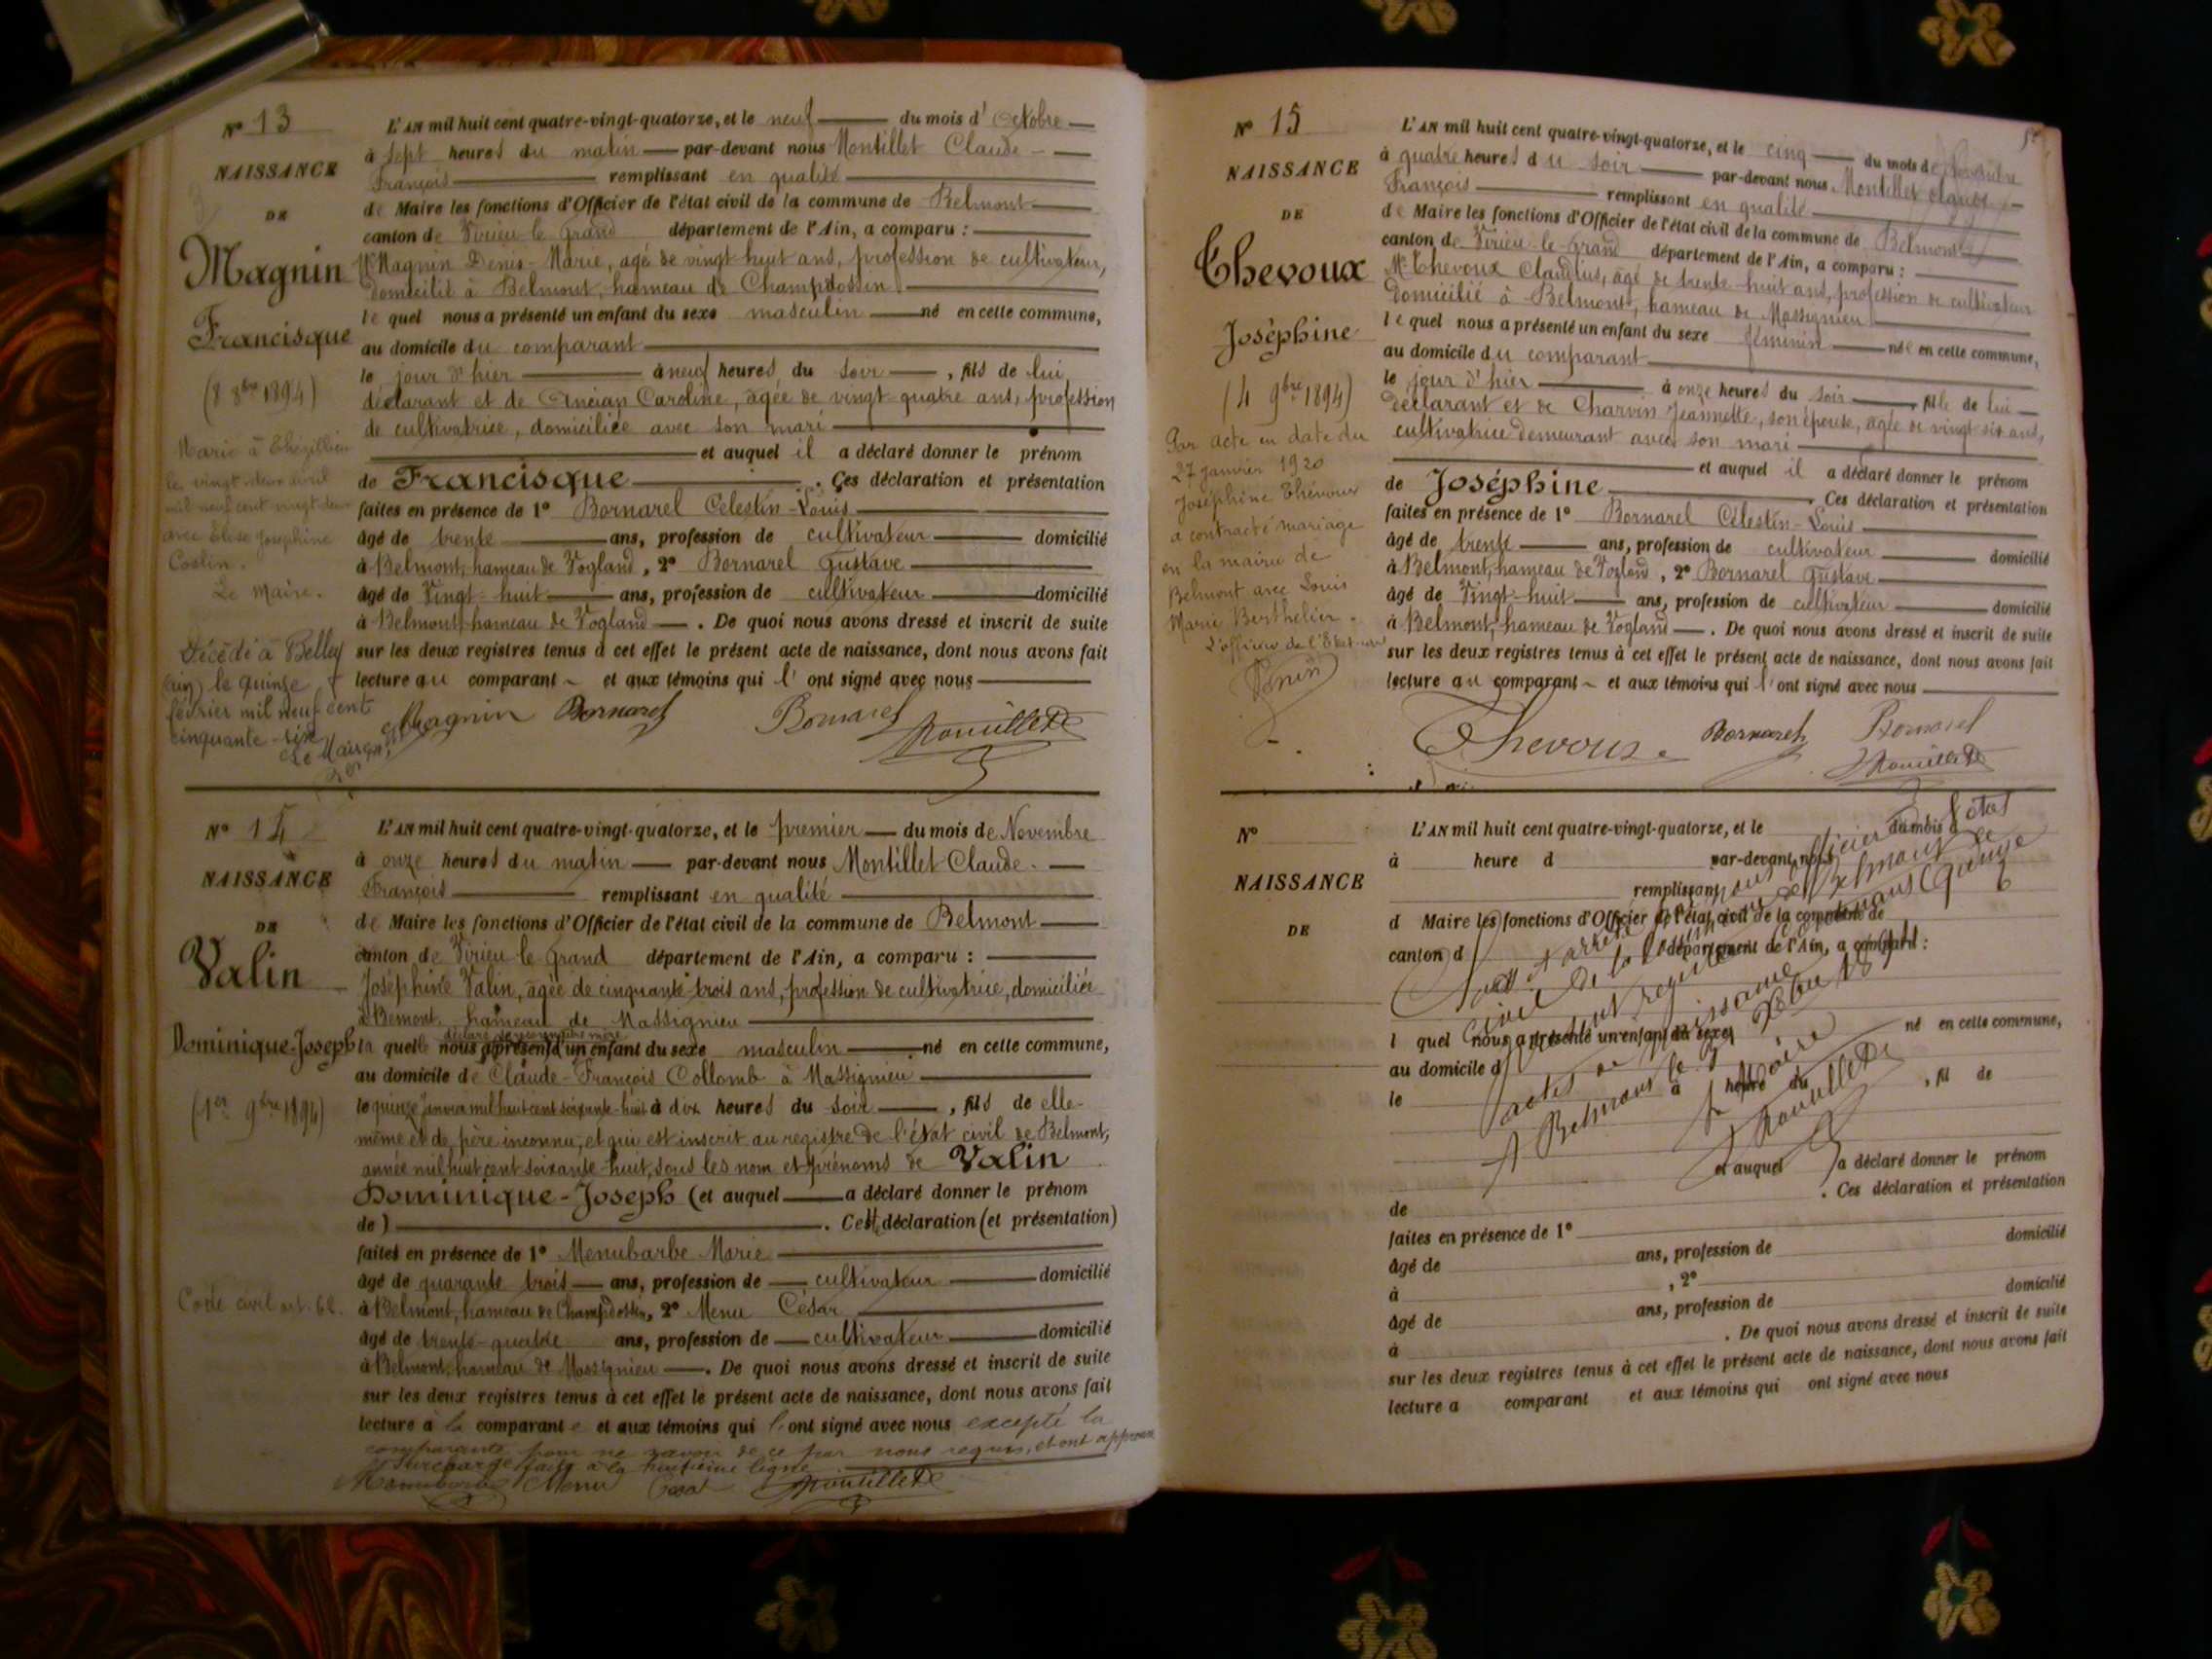 N° 13
NAISSANCE
DE
Magnin
Francisque
(8 8bre 1894)
Marié à Thézillieu
le vingt-deux avril
mil neuf cent vingt deux
avec Elise Joséphine
Costin.
Le Maire.
Décédé à Belley
(Ain) le quinze
février mil neuf cent
cinquante-six
Le Maire,
L'AN mil huit cent quatre-vingt-quatorze, et le neuf du mois d'Octobre
à sept heures du matin par-devant nous Montillet Claude-
François remplissant en qualité
de Maire les fonctions d'Officier de l'état civil de la commune de Belmont
canton de Virieu-le-Grand département de l'Ain, a comparu :
Mr Magnin Denis-Marie, âgé de vingt-huit ans, profession de cultivateur,
domicilié à Belmont, hameau de Champdossin
lequel nous a présenté un enfant du sexe masculin né en cette commune,
au domicile du comparant
le jour d'hier à neuf heures du soir, fils de lui
déclarant et de Ancian Caroline, âgée de vingt-quatre ans, profession
de cultivatrice, domiciliée avec son mari
et auquel il a déclaré donner le prénom
de Francisque. Ces déclaration et présentation
faites en présence de 1° Bornarel Célestin-Louis
âgé de trente ans, profession de cultivateur domicilié
à Belmont, hameau de Vogland, 2° Bornarel Gustave
âgé de Vingt-huit ans, profession de cultivateur domicilié
à Belmont, hameau de Vogland. De quoi nous avons dressé et inscrit de suite
sur les deux registres tenus à cet effet le présent acte de naissance, dont nous avons fait
lecture au comparant et aux témoins qui l'ont signé avec nous
Magnin Bornarel Bornarel Montillet
N° 14
NAISSANCE
DE
Valin
Dominique-Joseph
(1er 9bre 1894)
Code civil art. 62.
L'AN mil huit cent quatre-vingt-quatorze, et le premier du mois de Novembre
à onze heures du matin par-devant nous Montillet Claude-
François remplissant en qualité
de Maire les fonctions d'Officier de l'état civil de la commune de Belmont
canton de Virieu-le-Grand département de l'Ain, a comparu :
Joséphine Valin, âgée de cinquante-trois ans, profession de cultivatrice, domiciliée
à Bemont, hameau de Massignieu
déclaré se reconnaître mère
laquelle nous a présenté un enfant du sexe masculin né en cette commune,
au domicile de Claude-François Collomb à Massignieu
le quinze Janvier mil huit cent soixante-huit à dix heures du soir, fils de elle-
même et de père inconnu, et qui est inscrit au registre de l'état civil de Belmont,
année mil huit cent soixante-huit, sous les nom et prénoms de Valin
Dominique-Joseph (et auquel a déclaré donner le prénom
de). Cette déclaration (et présentation)
faites en présence de 1° Menubarbe Marie
âgé de quarante trois ans, profession de cultivateur domicilié
à Belmont, hameau de Champdossin, 2° Menu César
âgé de trente-quatre ans, profession de cultivateur domicilié
à Belmont, hameau de Massignieu. De quoi nous avons dressé et inscrit de suite
sur les deux registres tenus à cet effet le présent acte de naissance, dont nous avons fait
lecture à la comparante et aux témoins qui l'ont signé avec nous excepté la
comparante pour ne savoir de ce par nous requis, et ont approuvé
la surcharge faite à la huitième ligne
Menubarbe Menu César Montillet
N° 15
NAISSANCE
DE
Thevoux
Joséphine
(4 9bre 1894)
Par acte en date du
27 janvier 1920
Joséphine Thévoux
a contracté mariage
en la mairie de
Belmont avec Louis
Marie Berthelier.
L'officier de l'Etat-civil
L'AN mil huit cent quatre-vingt-quatorze, et le cinq du mois de Novembre
à quatre heures du soir par-devant nous Montillet Claude
François remplissant en qualité
de Maire les fonctions d'Officier de l'état civil de la commune de Belmont
canton de Virieu-le-Grand département de l'Ain, a comparu :
Mr Thevoux Claudius, âgé de trente-huit ans, profession de cultivateur
domicilié à Belmont, hameau de Massignieu
lequel nous a présenté un enfant du sexe féminin née en cette commune,
au domicile du comparant
le jour d'hier à onze heures du soir, fille de lui
déclarant et de Charvin Jeannette, son épouse, âgée de vingt-six ans,
cultivatrice demeurant avec son mari
et auquel il a déclaré donner le prénom
de Joséphine. Ces déclaration et présentation
faites en présence de 1° Bornarel Célestin-Louis
âgé de trente ans, profession de cultivateur domicilié
à Belmont, hameau de Vogland, 2° Bornarel Gustave
âgé de Vingt-huit ans, profession de cultivateur domicilié
à Belmont, hameau de Vogland. De quoi nous avons dressé et inscrit de suite
sur les deux registres tenus à cet effet le présent acte de naissance, dont nous avons fait
lecture au comparant et aux témoins qui l'ont signé avec nous
Thevoux Bornarel Bornarel
Montillet
N°
NAISSANCE
DE
L'AN mil huit cent quatre-vingt-quatorze, et le du mois d
à heure d par-devant nous
remplissant
d Maire les fonctions d'Officier de l'état civil de la commune de
canton d département de l'Ain, a comparu :
l quel nous a présenté un enfant du sexe né en cette commune,
au domicile d
le à heure du, fil de
et auquel a déclaré donner le prénom
de. Ces déclaration et présentation
faites en présence de 1°
âgé de ans, profession de domicilié
à, 2°
âgé de ans, profession de domicilié
à. De quoi nous avons dressé et inscrit de suite
sur les deux registres tenus à cet effet le présent acte de naissance, dont nous avons fait
lecture a comparant et aux témoins qui ont signé avec nous
arrêté par nous officier de l'état
civil de la commune de Belmont le
présent registre contenant quinze
actes de naissance
A Belmont le
Le Maire
Montillet